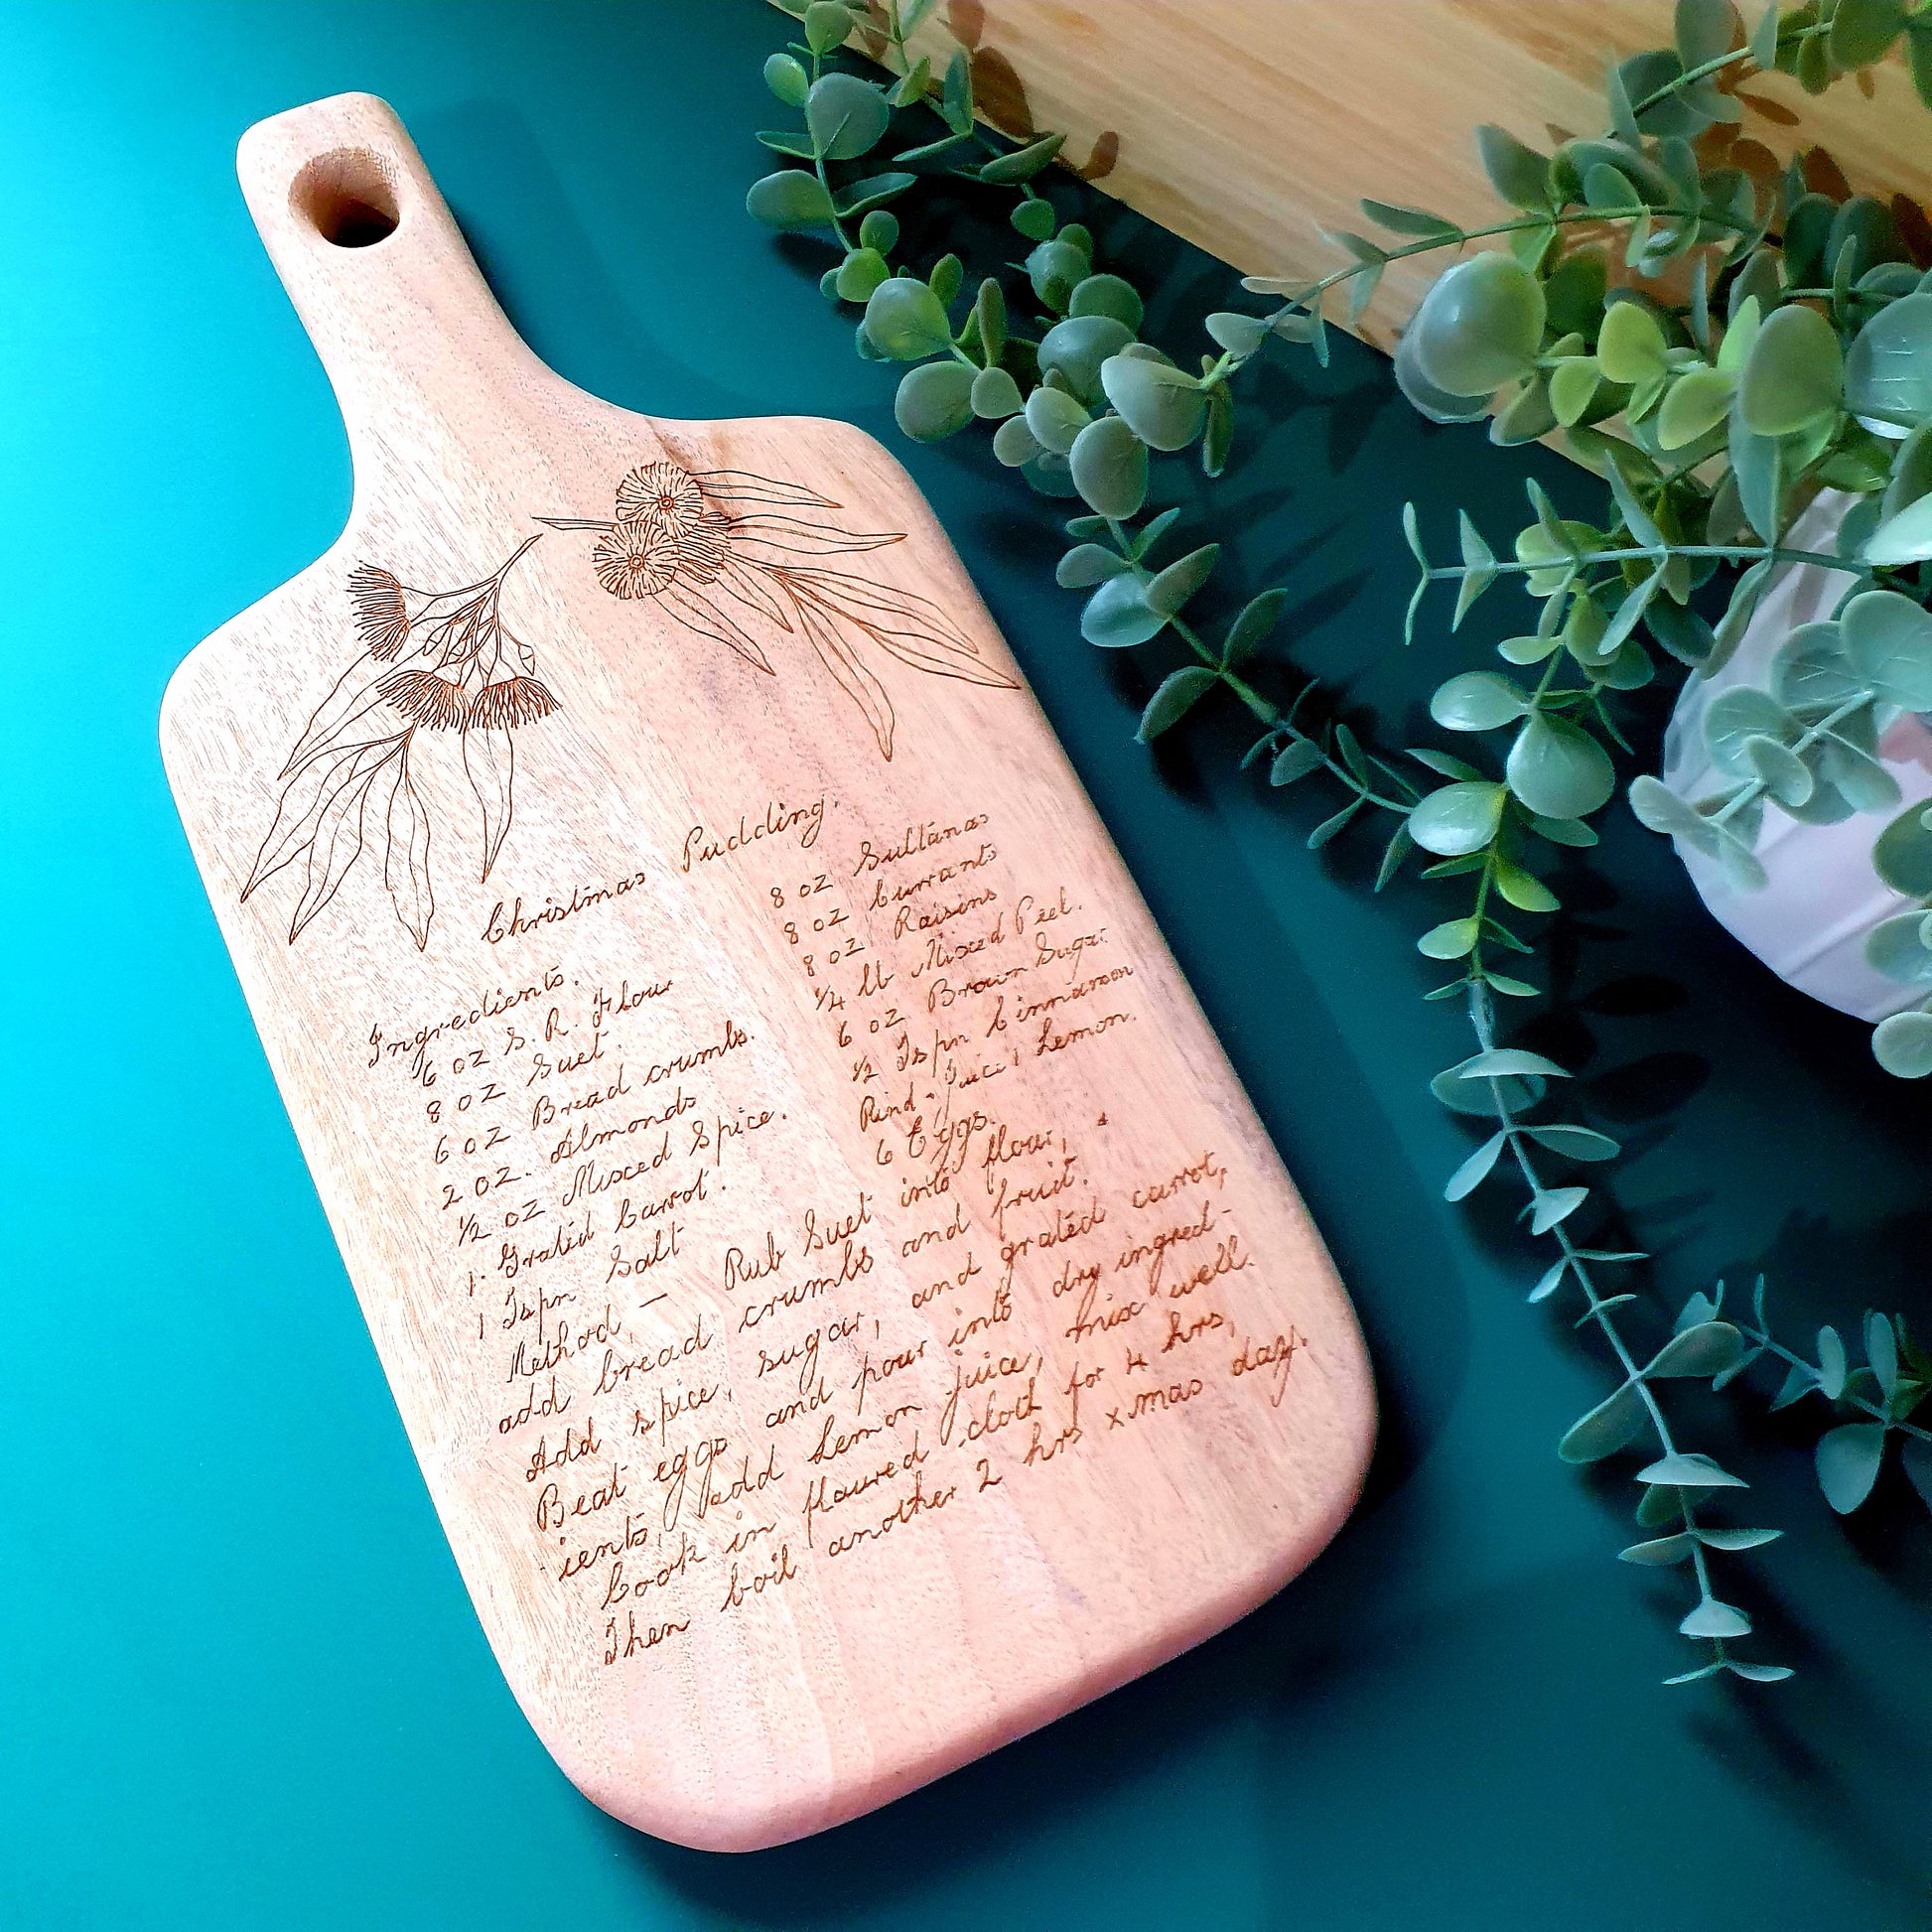 Christmas Pudding.
Ingredients.
6 oz S. R. Flour
8 oz Suet.
6 oz Bread crumbs.
2 oz. Almonds
½ oz Mixed Spice.
1. Grated Carrot.
1 Tspn Salt
8 oz Sultanas
8 oz Currants
8 oz Raisins
¼ lb Mixed Peel.
6 oz Brown Sugar
½ Tspn Cinnamon
Rind - Juice 1 Lemon.
6 Eggs.
Method, — Rub Suet into flour,
add bread crumbs and fruit.
Add spice, sugar, and grated carrot,
Beat eggs and pour into dry ingred-
-ients, add Lemon juice, mix well.
Cook in floured cloth for 4 hrs,
Then boil another 2 hrs xmas day.